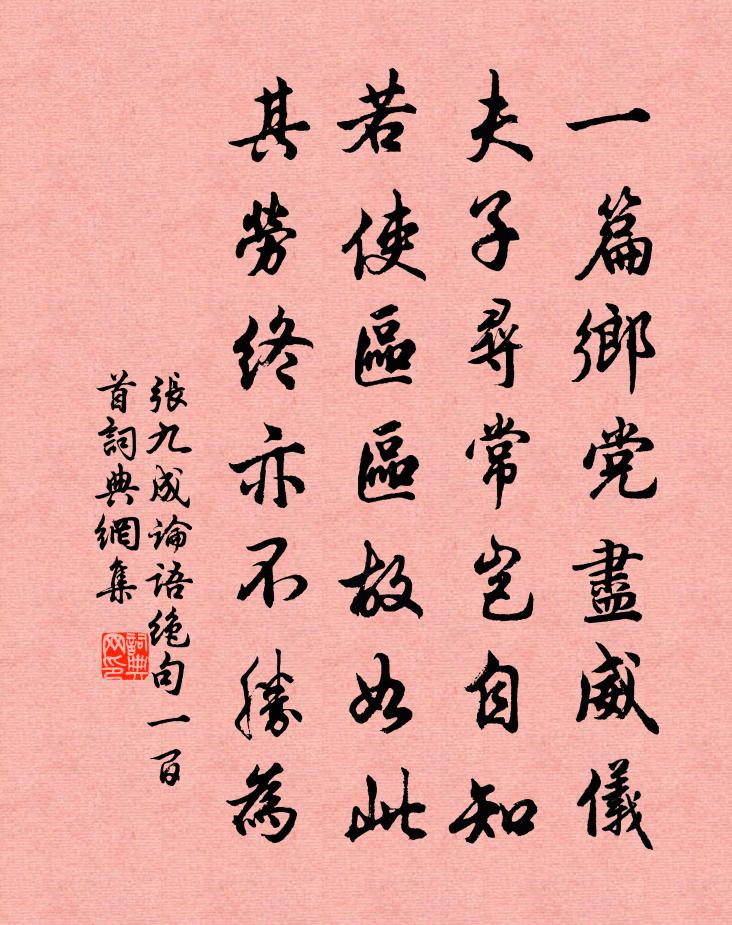 一篇鄉党盡威儀
夫子尋常岂自知
若使區區故如此
其勞終亦不勝為
張九成論語絶句一百
首詞典網集
詞典网印